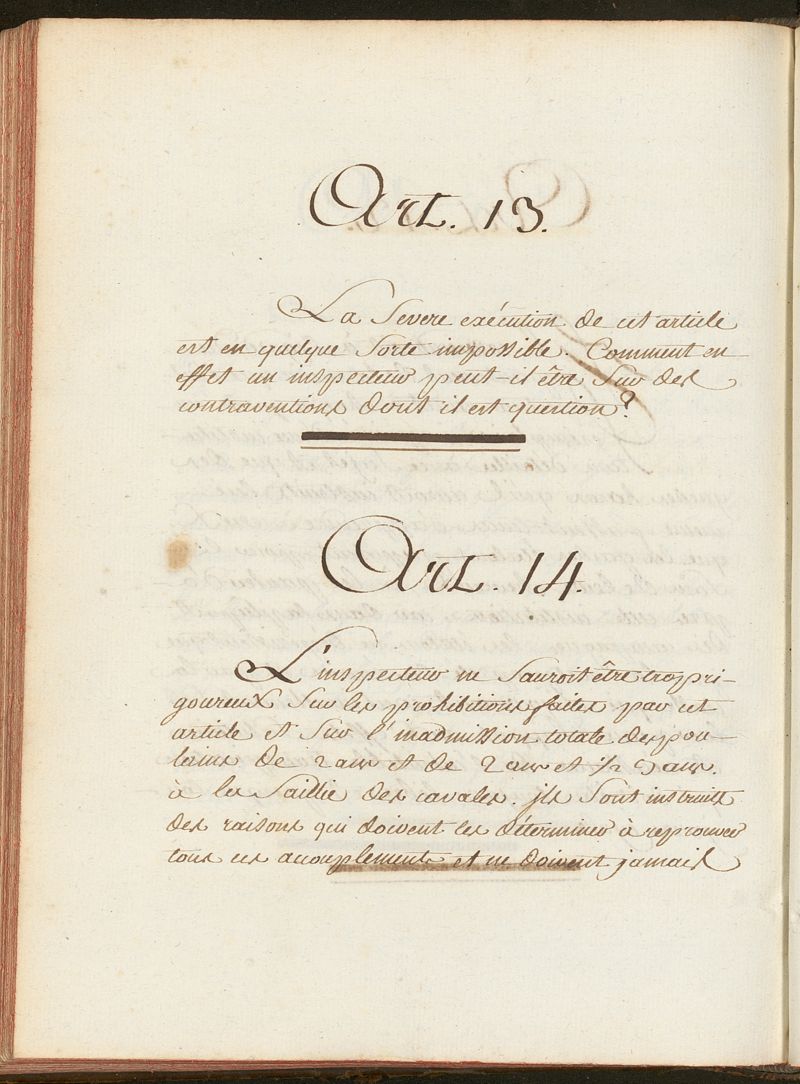 Art. 13.
La Severe exécution de cet article
est en quelque Sorte impossible. Comment en
effet un inspecteur peut-il être Sur des
contraventions dont il est question?
Art. 14.
L'inspecteur ne Sauroit être trop ri-
goureux Sur les prohibitions faites par cet
article et Sur l'inadmission totale des pou-
lains de 2 ans et de 2 ans et 1/2 3 ans.
à la Saillie des cavales. ils Sont instruits
des raisons qui doivent les déterminer à reprouver
tous ces accouplements et ne doivent jamais